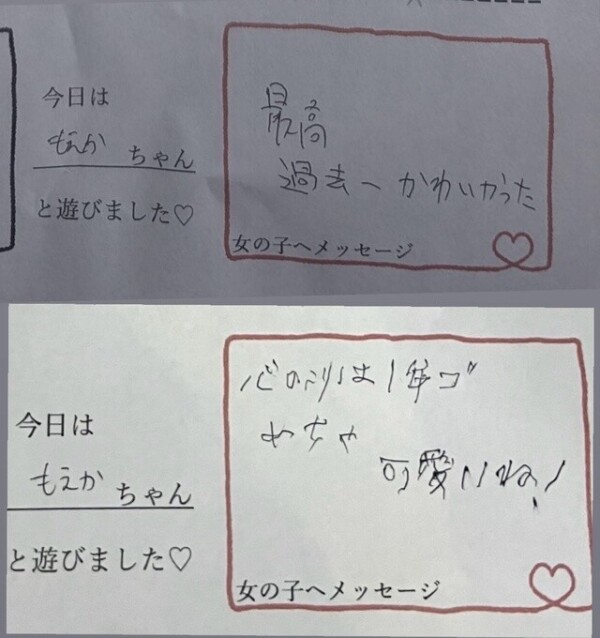 今日は
もえか ちゃん
と遊びました♡
最高
過去一 かわいかった
女の子へメッセージ
今日は
もえか ちゃん
と遊びました♡
めちゃ
可愛いね!
女の子へメッセージ